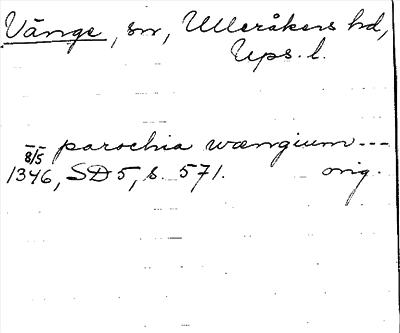 Vänge, sn, Ulleråkers hd,
Ups. l.
-- parochia wængium ---
8/5
1346, SD 5, s. 571. orig.